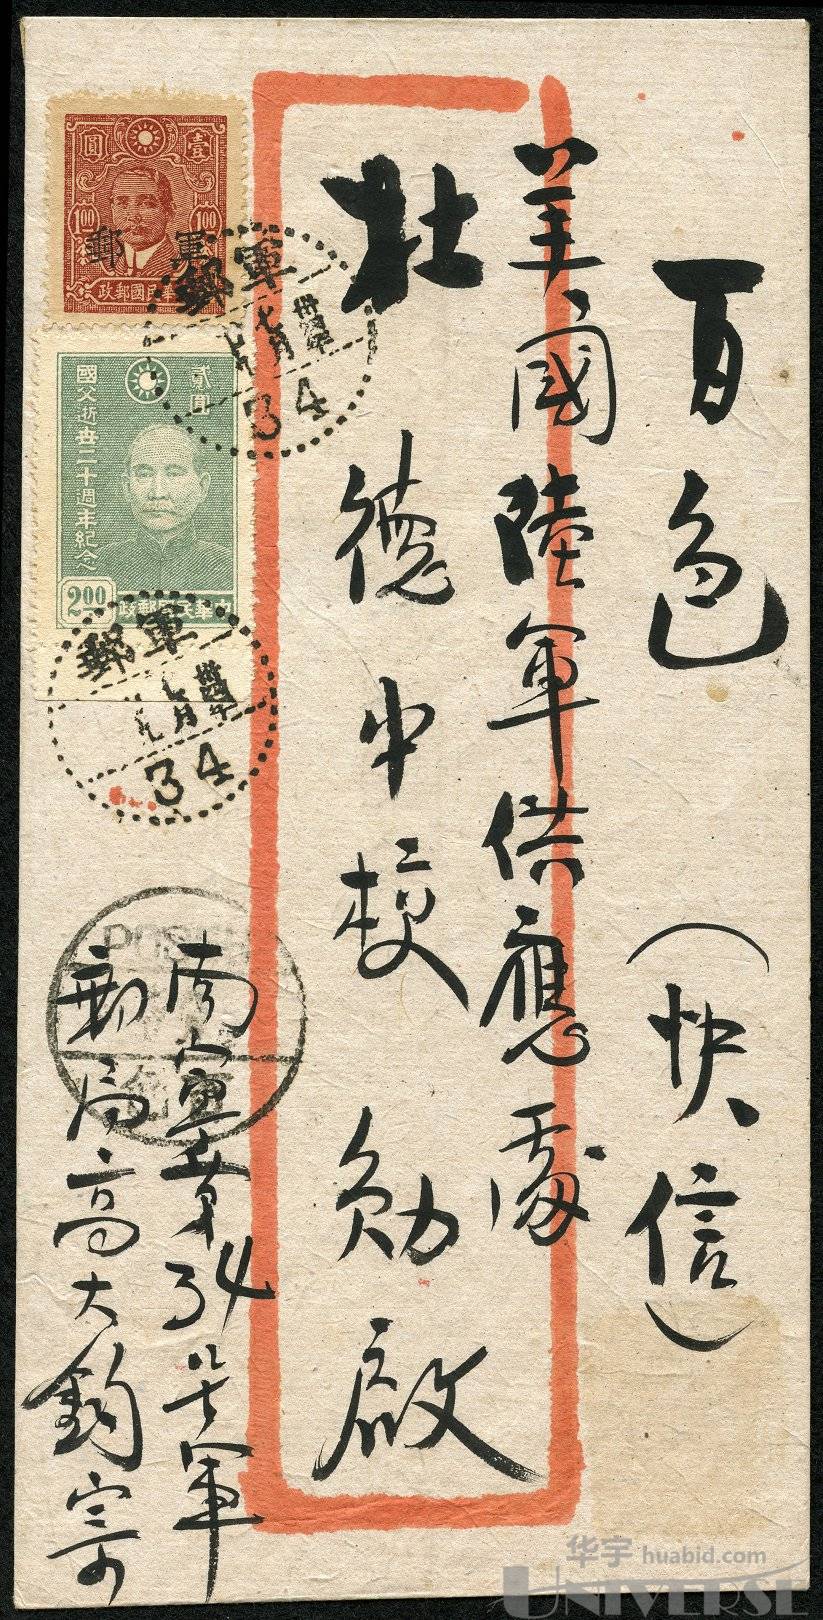 百色 (快信)
美國陸軍供應處
杜德中校 勛啟
南寧第34號軍
郵局高大鈞寄
壹圓
1.00 1.00
軍郵
中華民國郵政
貳圓
國父逝世二十週年紀念
2.00
中華民國郵政
軍郵
卅四年
七月
34
軍郵
卅四年
七月
34
华宇 huabid.com
UNIVERSE